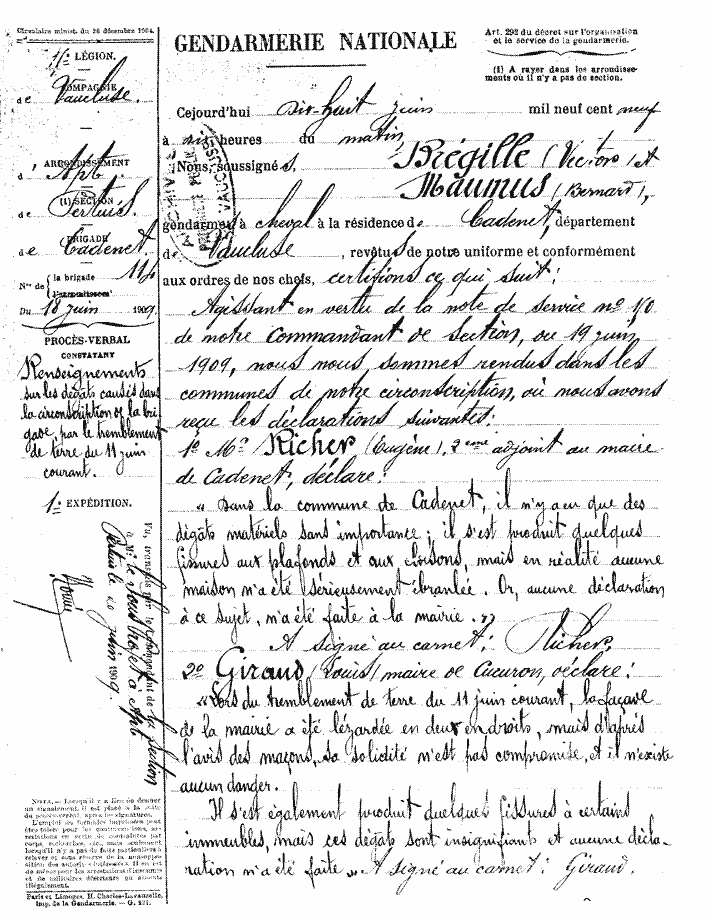 Circulaire minist. du 26 décembre 1904.
15e LÉGION.
COMPAGNIE
de Vaucluse.
ARRONDISSEMENT
d' Apt
(1) SECTION
de Pertuis.
BRIGADE
de Cadenet.
Nos de la brigade 114
l'arrondissement
Du 18 juin 1909
PROCÈS-VERBAL
CONSTATANT
Renseignements
sur les dégâts causés dans
la circonscription de la bri
gade, par le tremblement
de terre du 11 juin
courant.
1e EXPÉDITION.
Vu, transmis par le Commandant de la section
à Mr le Sous Préfet à Apt
Pertuis le 20 juin 1909.
GENDARMERIE NATIONALE
Art. 292 du décret sur l'organisation
et le service de la gendarmerie.
(1) A rayer dans les arrondisse-
ments où il n'y a pas de section.
Cejourd'hui dix-huit juin mil neuf cent neuf
à heures du matin,
Nous, soussignés, Brégille (Victor) et
Maumus (Bernard),
gendarmes à cheval à la résidence de Cadenet, département
de Vaucluse, revêtus de notre uniforme et conformément
aux ordres de nos chefs, certifions ce qui suit:
Agissant en vertu de la note de service no 40
de notre Commandant de Section, du 14 juin
1909, nous nous sommes rendus dans les
communes de notre circonscription, où nous avons
reçu les déclarations suivantes:
1o Mr Richer (Eugène), 2ème adjoint au maire
de Cadenet, déclare:
« Dans la commune de Cadenet, il n'y a eu que des
dégâts matériels sans importance; il s'est produit quelques
fissures aux plafonds et aux cloisons, mais en réalité aucune
maison n'a été sérieusement ébranlée. Or, aucune déclaration
à ce sujet, n'a été faite à la mairie. »
A signé au carnet: Richer,
2o Giraud (Louis) maire de Cucuron, déclare:
« Lors du tremblement de terre du 11 juin courant, la façade
de la mairie a été lézardée en deux endroits, mais d'après
l'avis des maçons, sa solidité n'est pas compromise, et il n'existe
aucun danger.
Il s'est également produit quelques fissures à certains
immeubles, mais ces dégâts sont insignifiants et aucune décla-
ration n'a été faite » A signé au carnet: Giraud.
NOTA. — Lorsqu'il y a lieu de donner
un signalement, il est placé à la suite
du procès-verbal, après les signatures.
Paris et Limoges. H. Charles-Lavauzelle,
Imp. de la Gendarmerie. — G. 221.